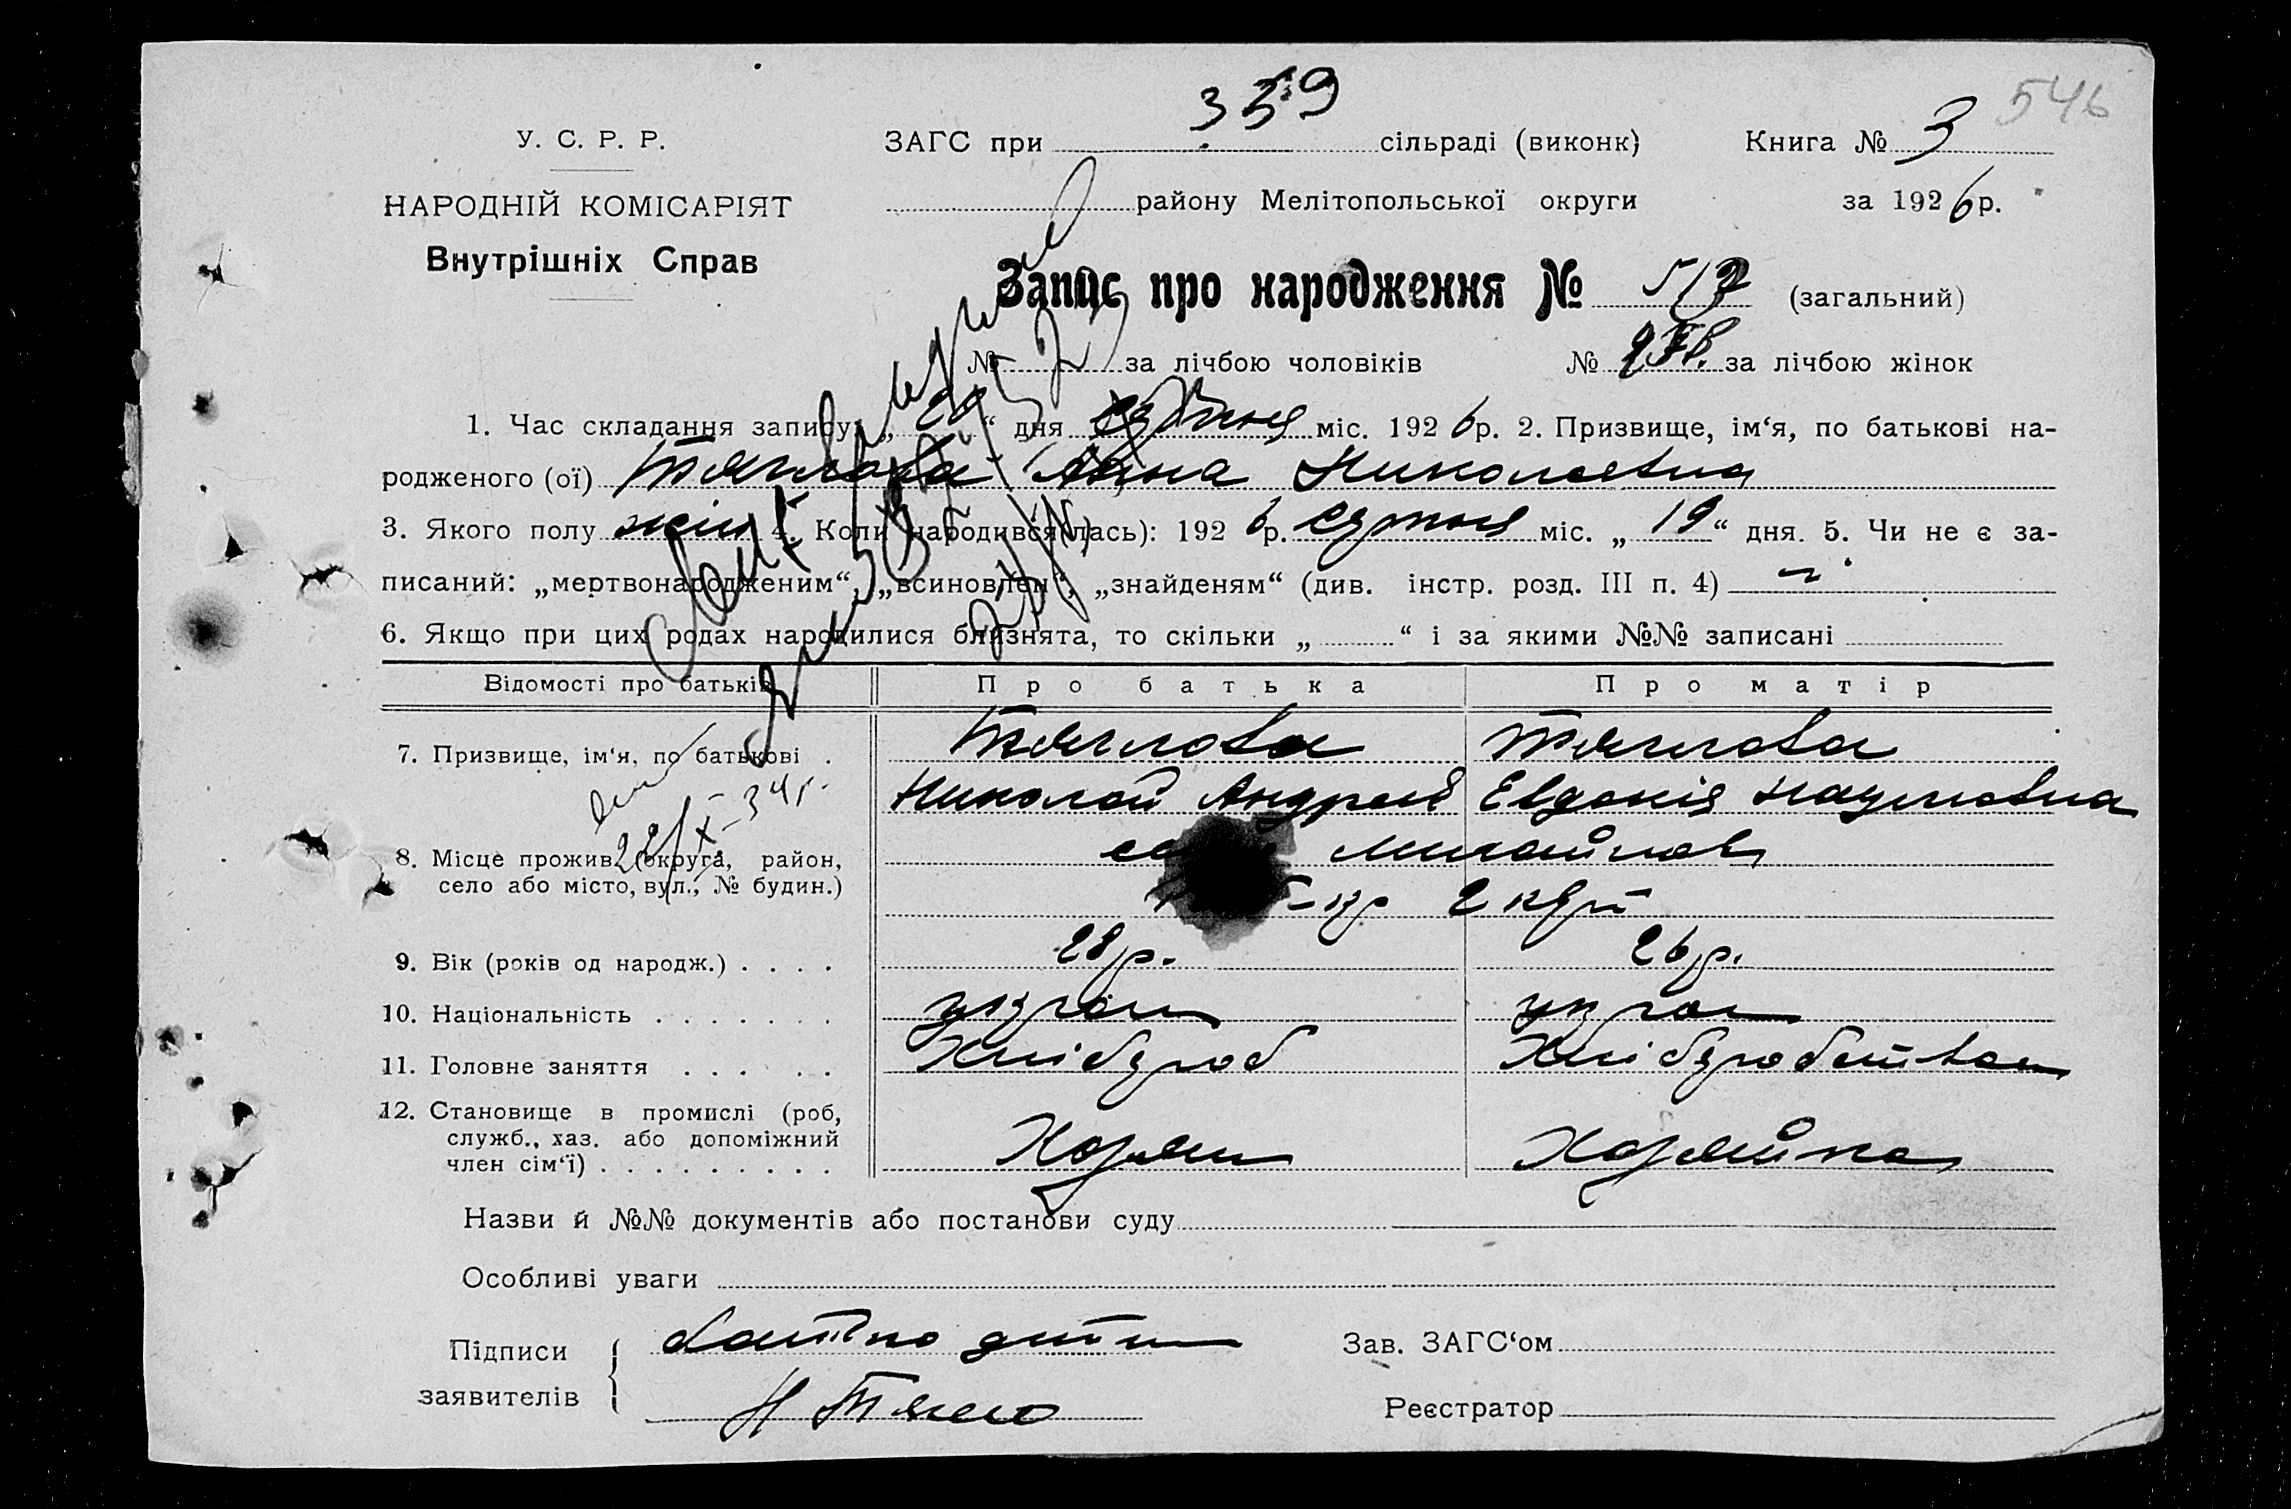 359 546
У. С. Р. Р. ЗАГС при сільраді (виконк) Книга № 3
НАРОДНІЙ КОМІСАРІЯТ району Мелітопольської округи за 1926 р.
Внутрішніх Справ
Запис про народження № 517 (загальний)
№ за лічбою чоловіків № за лічбою жінок
1. Час складання запису „20“ дня серпня міс. 1926 р. 2. Призвище, ім‘я, по батькові на-
родженого (ої) Тяглова Анна Николаевна
3. Якого полу жін 4. Коли народився(лась): 1926 р. серпня міс. „19“ дня. 5. Чи не є за-
писаний: „мертвонародженим“, „всиновлен“, „знайденям“ (див. інстр. розд. III п. 4)
6. Якщо при цих родах народилися близнята, то скільки „ “ і за якими №№ записані
Відомості про батьків Про батька Про матір
7. Призвище, ім‘я, по батькові . Тяглова Тяглова
Николай Андрей Евдокія Наумовна
22/X-34 г.
8. Місце прожив. (округа, район, Михайлов
село або місто, вул., № будин.)
9. Вік (років од народж.) . . . . 28 р. 26 р.
10. Національність . . . . . . . укра укра
11. Головне заняття . . . . . Хлібороб
12. Становище в промислі (роб,
служб., хаз. або допоміжний
член сім‘ї) . . . . . . . . . Хозяин Хозяйка
Назви й №№ документів або постанови суду
Особливі уваги
Підписи батько дитини Зав. ЗАГС‘ом
заявителів Н Тягло Реєстратор